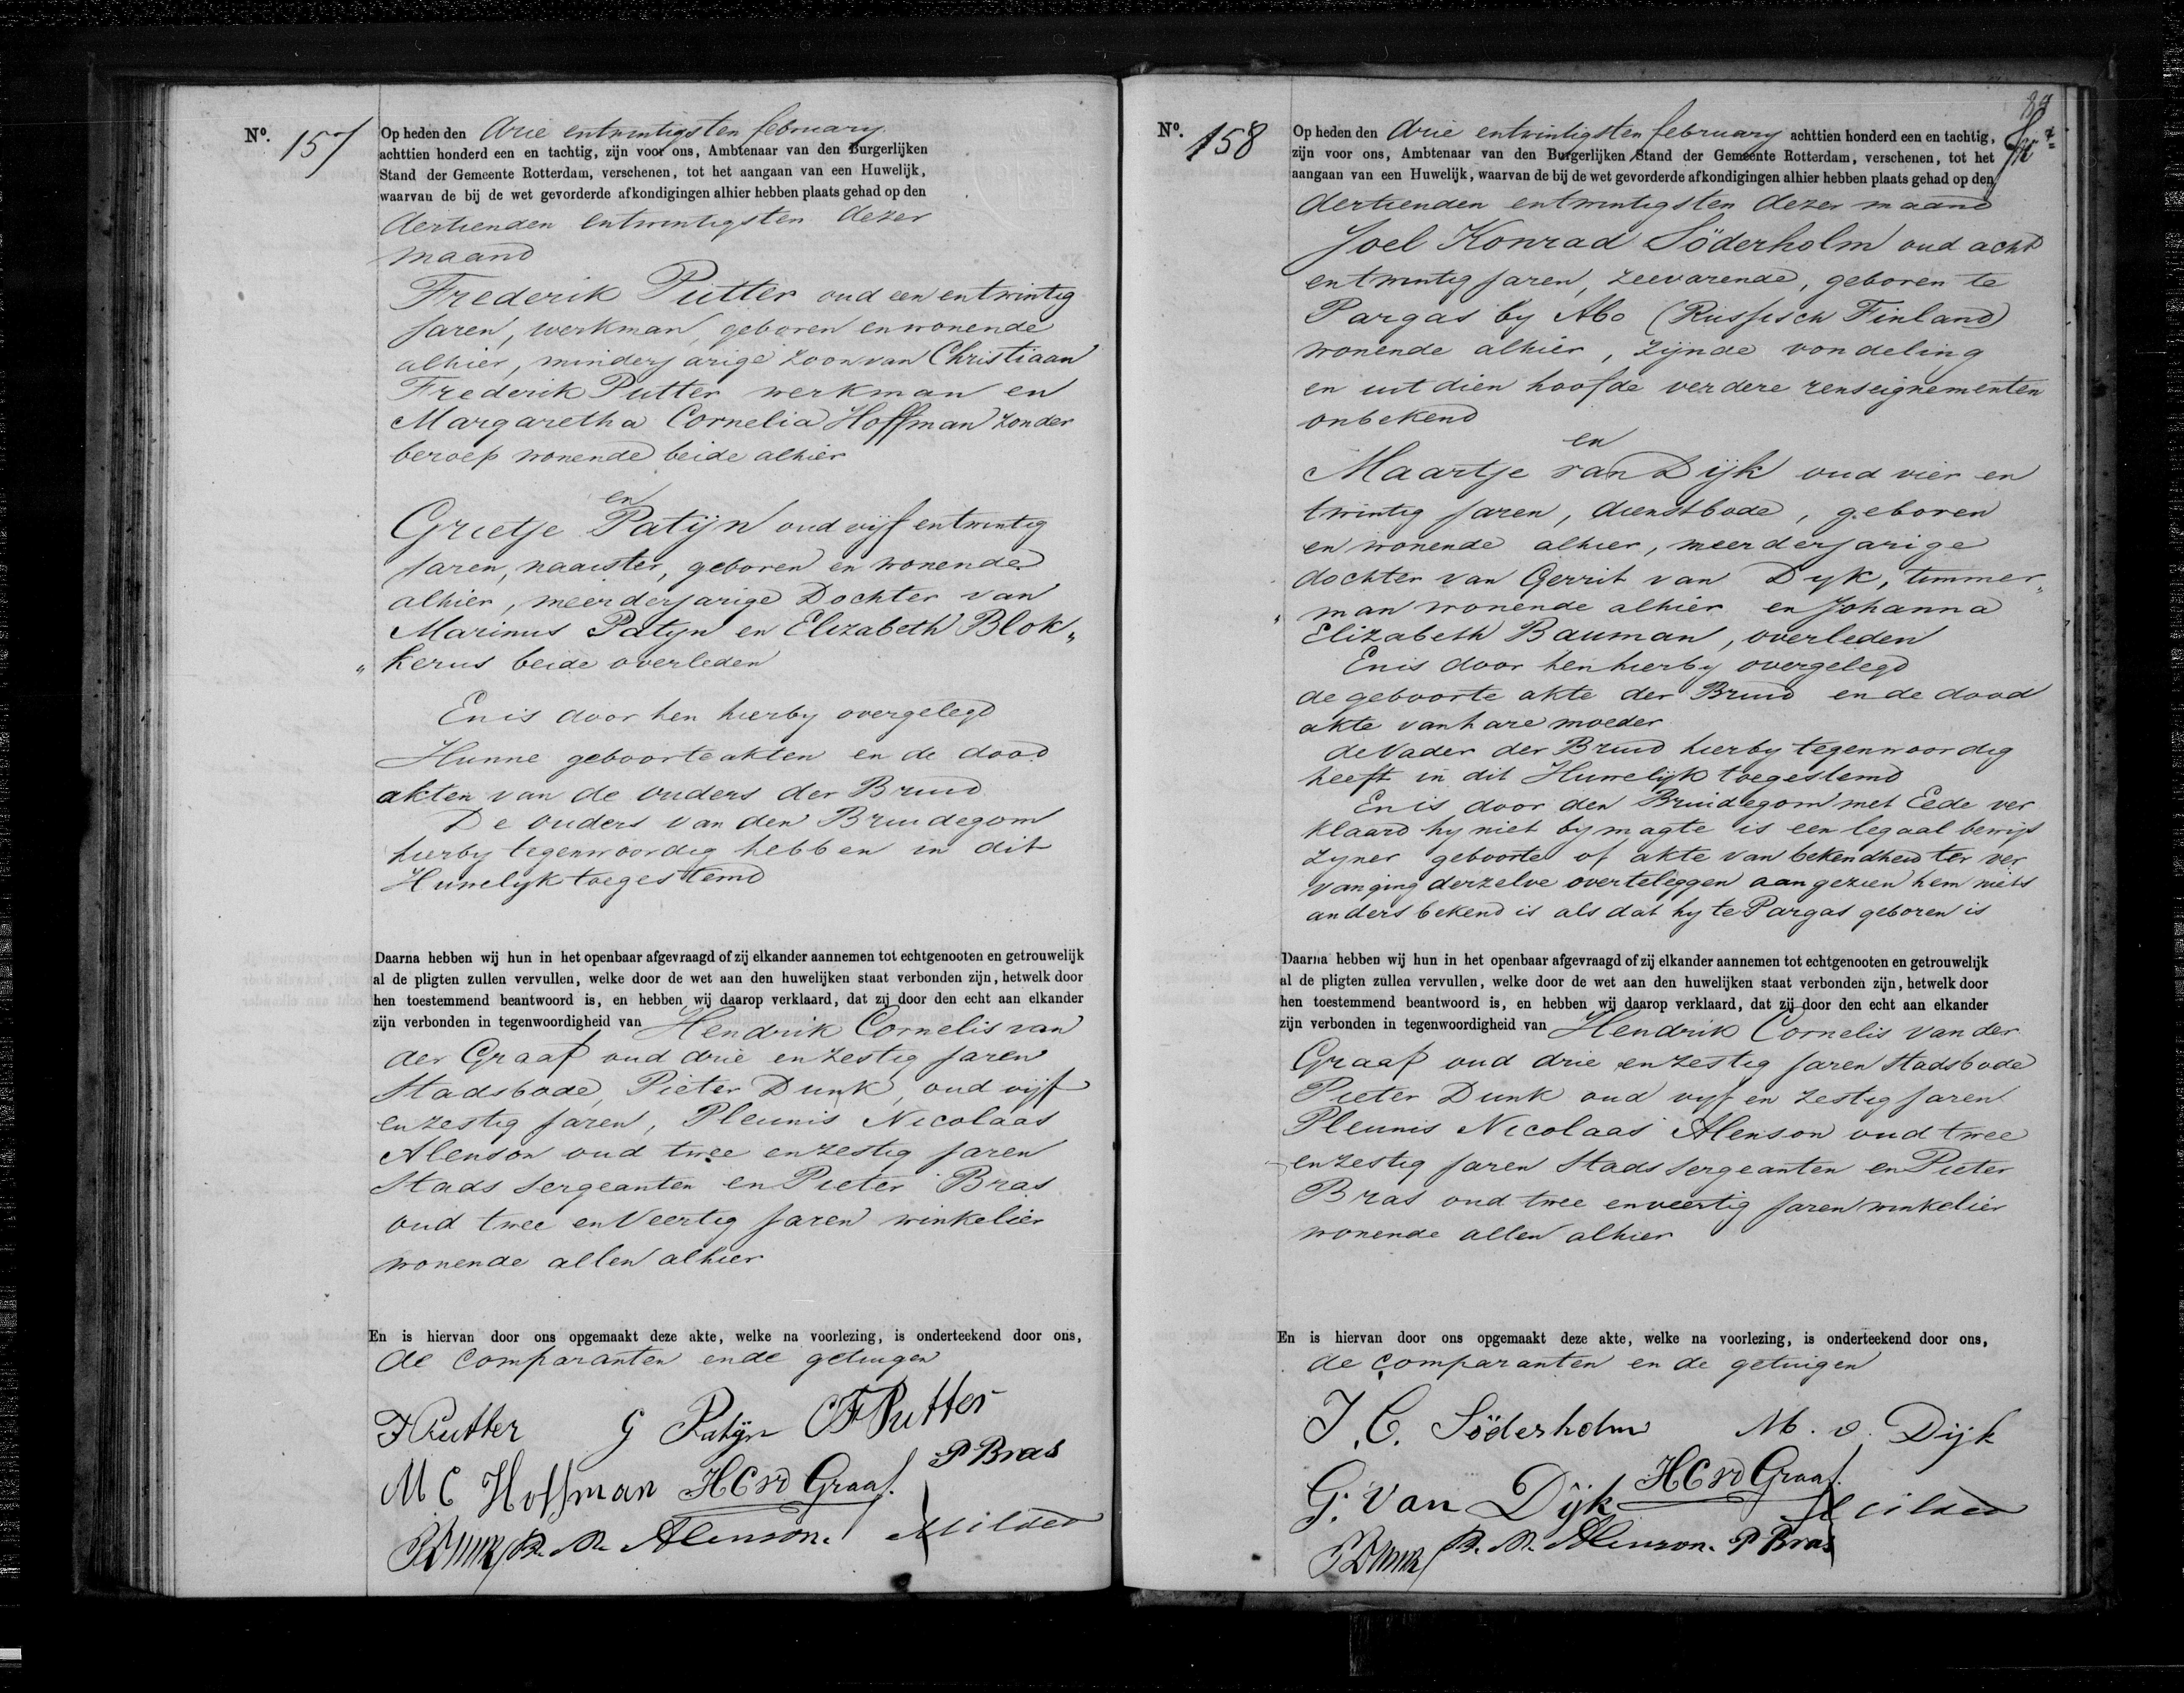 No. 157
Op heden den drie entwintigsten february
achttien honderd een en tachtig, zijn voor ons, Ambtenaar van den Burgerlijken
Stand der Gemeente Rotterdam, verschenen, tot het aangaan van een Huwelijk,
waarvan de bij de wet gevorderde afkondigingen alhier hebben plaats gehad op den
dertienden entwintigsten dezer
maand
Frederik Putter oud een entwintig
jaren, werkman, geboren en wonende
alhier, minderjarige zoon van Christiaan
Frederik Putter werkman en
Margaretha Cornelia Hoffman zonder
beroep wonende beide alhier
en
Grietje Patijn oud vijf entwintig
jaren, naaister, geboren en wonende
alhier, meerderjarige Dochter van
Marinus Patyn en Elizabeth Blok„
„kerus beide overleden
Enis door hen hierby overgelegd
Hunne geboorteakten en de dood
akten van de ouders der Bruid
De ouders van den Bruidegom
hierby tegenwoordig hebben in dit
Huwelyk toegestemd
Daarna hebben wij hun in het openbaar afgevraagd of zij elkander aannemen tot echtgenooten en getrouwelijk
al de pligten zullen vervullen, welke door de wet aan den huwelijken staat verbonden zijn, hetwelk door
hen toestemmend beantwoord is, en hebben wij daarop verklaard, dat zij door den echt aan elkander
zijn verbonden in tegenwoordigheid van Hendrik Cornelis van
der Graaf oud drie enzestig jaren
Stadsbode, Pieter Dunk, oud vijf
enzestig jaren, Pleunis Nicolaas
Alenson oud twee enzestig jaren
Stads sergeanten en Pieter Bras
oud twee enveertig jaren winkelier
wonende allen alhier
En is hiervan door ons opgemaakt deze akte, welke na voorlezing, is onderteekend door ons,
de comparanten ende getuigen
F Putter G Patijn CF Putter
M C Hoffman HCvd Graaf. P Bras
PDunk P. N. Alenson.
No. 158
Op heden den drie entwintigsten february achttien honderd een en tachtig,
zijn voor ons, Ambtenaar van den Burgerlijken Stand der Gemeente Rotterdam, verschenen, tot het
aangaan van een Huwelijk, waarvan de bij de wet gevorderde afkondigingen alhier hebben plaats gehad op den
dertienden entwintigsten dezer maand
Joel Konrad Söderholm oud acht
entwintig jaren, zeevarende, geboren te
Pargas by Abo (Russisch Finland)
wonende alhier, zijnde vondeling
en uit dien hoofde verdere renseignementen
onbekend
en
Maartje van Dijk oud vier en
twintig jaren, dienstbode, geboren
en wonende alhier, meerderjarige
dochter van Gerrit van Dyk, timmer„
„man wonende alhier en Johanna
Elizabeth Bauman, overleden
Enis door hen hierby overgelegd
de geboorte akte der Bruid en de dood
akte van hare moeder
de Vader der Bruid hierby tegenwoordig
heeft in dit Huwelijk toegestemd
Enis door den Bruidegom met Eede ver
klaard hy niet by magte is een legaal bewijs
zyner geboorte of akte van bekendheid ter ver
vanging derzelve overteleggen aangezien hem niets
anders bekend is als dat hy te Pargas geboren is
Daarna hebben wij hun in het openbaar afgevraagd of zij elkander aannemen tot echtgenooten en getrouwelijk
al de pligten zullen vervullen, welke door de wet aan den huwelijken staat verbonden zijn, hetwelk door
hen toestemmend beantwoord is, en hebben wij daarop verklaard, dat zij door den echt aan elkander
zijn verbonden in tegenwoordigheid van Hendrik Cornelis van der
Graaf oud drie enzestig jaren Stadsbode
Pieter Dunk oud vyf en zestig jaren
Pleunis Nicolaas Alenson oud twee
enzestig jaren Stads sergeanten en Pieter
Bras oud twee enveertig jaren winkelier
wonende allen alhier
En is hiervan door ons opgemaakt deze akte, welke na voorlezing, is onderteekend door ons,
de comparanten en de getuigen
J. C. Söderholm M. v. Dijk
G. Van Dijk HCvd Graaf.
PDunk P. N. Alenson. P Bras